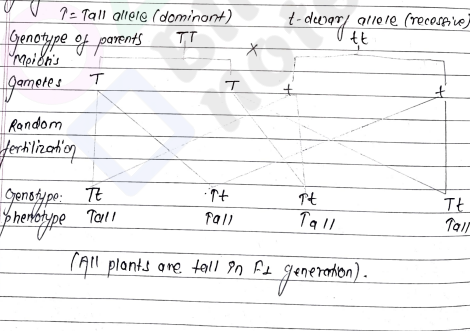 T = Tall allele (dominant) t-dwarf allele (recessive)
Genotype of parents TT x tt
Meiosis
gametes T T t t
Random
fertilization
Genotype: Tt Tt Tt Tt
phenotype Tall Tall Tall Tall
(All plants are tall in F1 generation).